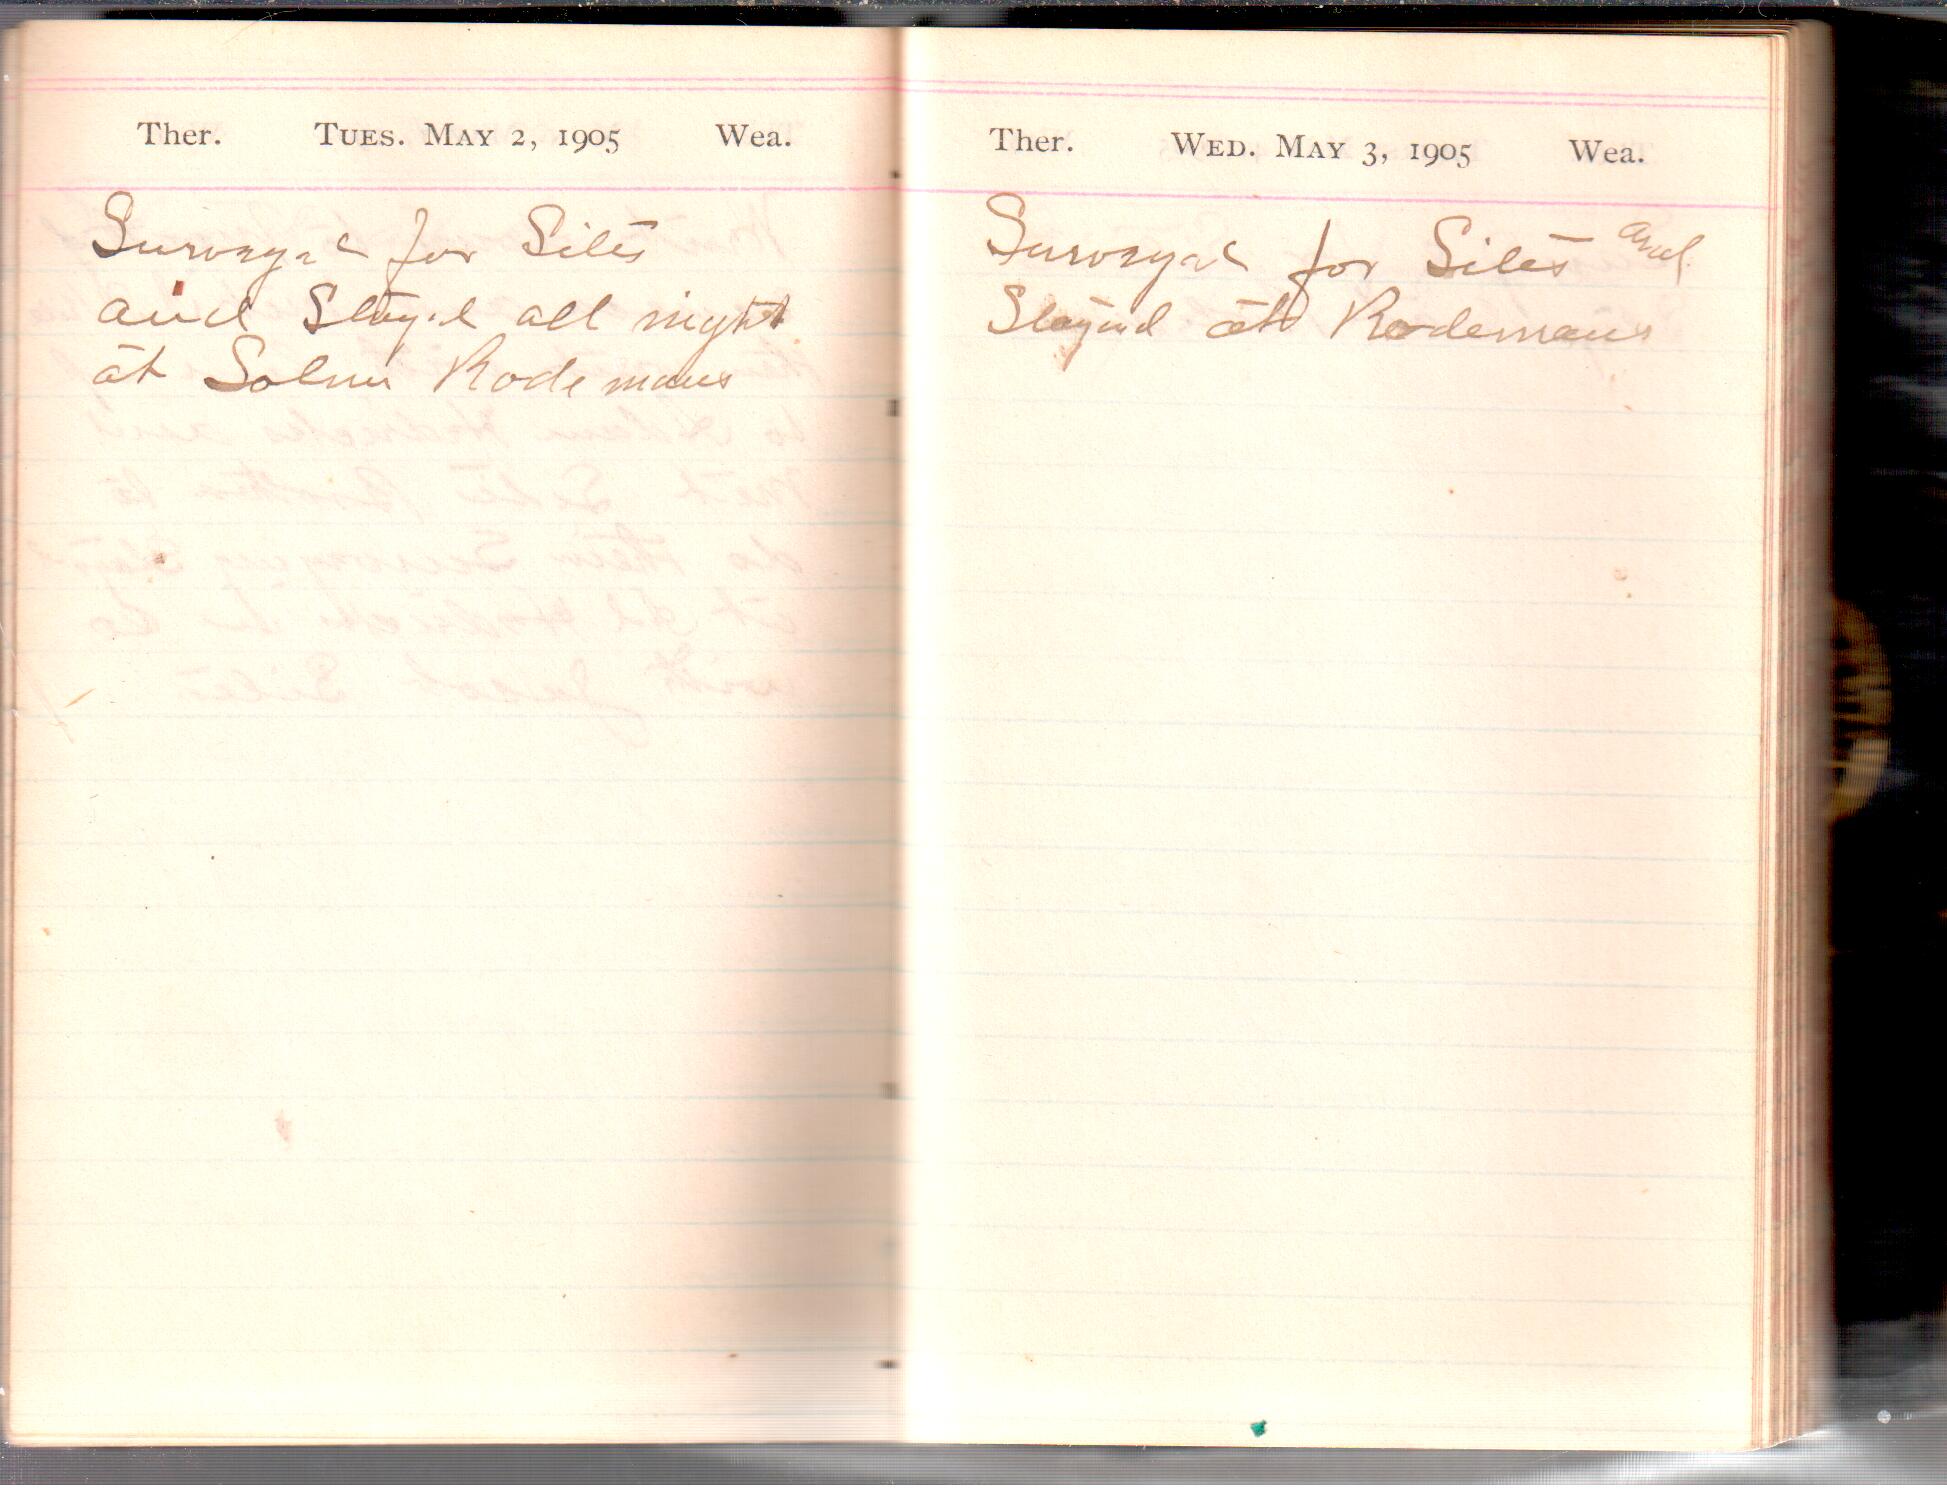 Ther. Tues. May 2, 1905 Wea.
Surveyed for Sites
and Stayed all night
at Rodemans
Ther. Wed. May 3, 1905 Wea.
Surveyed for Sites and
Stayed at Rodemans